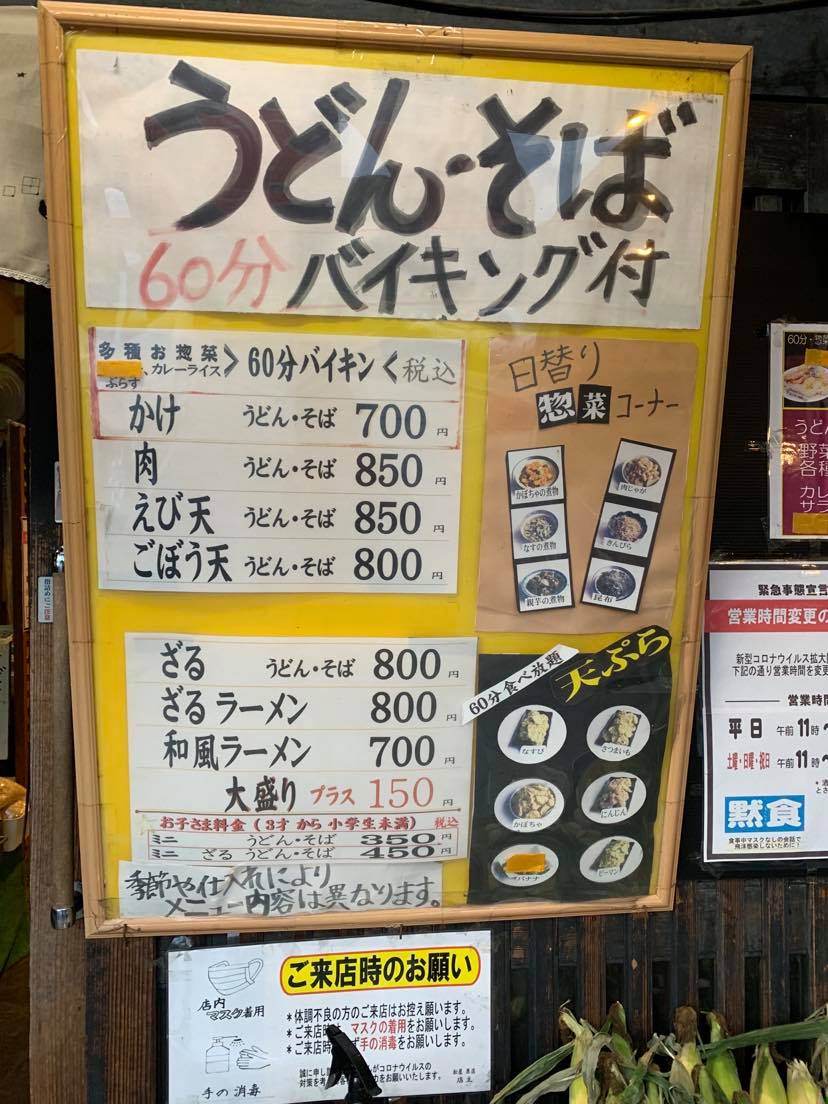 うどん・そば
60分 バイキング付
多種お惣菜
、カレーライス
ぷらす
> 60分バイキン < 税込
かけ うどん・そば 700円
肉 うどん・そば 850円
えび天 うどん・そば 850円
ごぼう天 うどん・そば 800円
日替り
惣菜コーナー
かぼちゃの煮物
肉じゃが
なすの煮物
きんぴら
親芋の煮物
昆布
ざる うどん・そば 800円
ざるラーメン 800円
和風ラーメン 700円
大盛り プラス 150円
お子さま料金(3才から小学生未満) 税込
ミニ うどん・そば 350円
ミニ ざるうどん・そば 450円
季節や仕入れにより
メニュー内容は異なります。
60分食べ放題
天ぷら
なすび
さつまいも
かぼちゃ
にんじん
バナナ
ピーマン
60分・惣
うどん
野菜
各種
カレ
サラ
指詰めにご注意
緊急事態宣言
営業時間変更の
新型コロナウイルス拡大
下記の通り営業時間を変更
営業時間
平日 午前11時〜
土曜・日曜・祝日 午前11時〜
黙食
食事中マスクなしの会話で
飛沫感染しないために!
ご来店時のお願い
店内
マスク着用
手の消毒
*体調不良の方のご来店はお控え願います。
*ご来店時は、マスクの着用をお願いします。
*ご来店時 ず手の消毒をお願いします。
誠に申し がコロナウイルスの
対策を考 力をお願いいたします。
店主